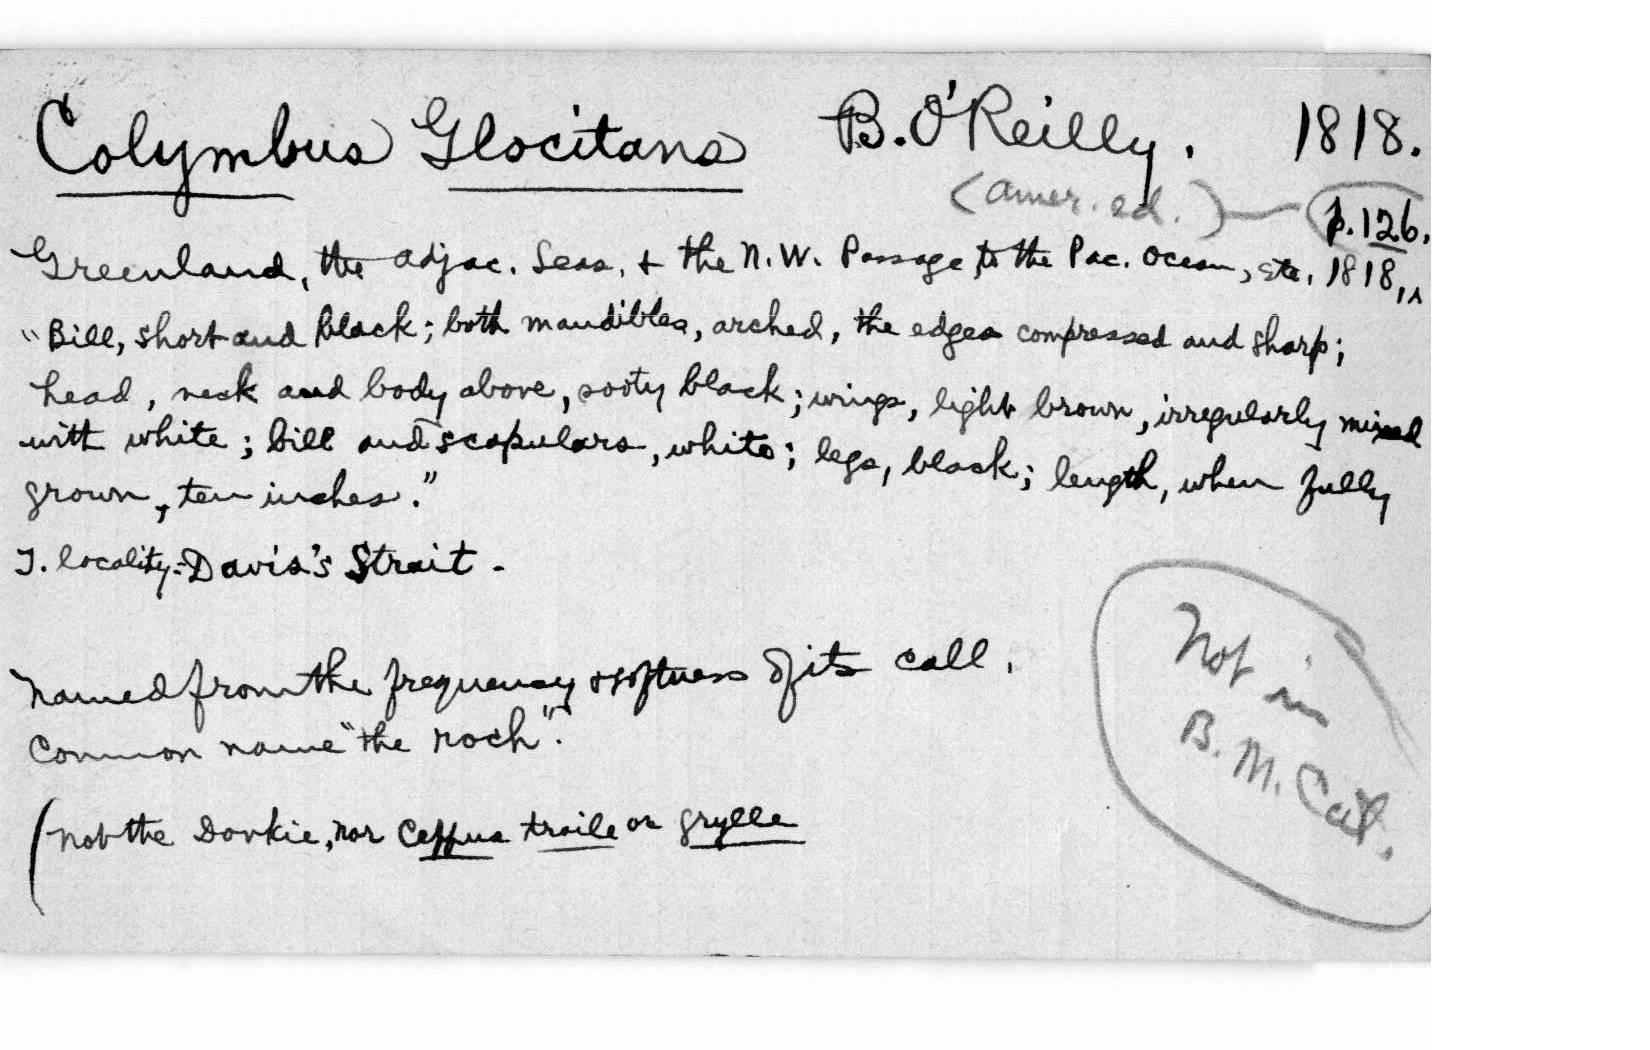 Colymbus Glocitans B. O'Reilly. 1818.
(Amer. ed.) p. 126.
Greenland, the adjac. Seas, + the N.W. Passage to the Pac. Ocean, etc. 1818,
"Bill, short and black; both mandibles, arched, the edges compressed and sharp;
head, neck and body above, sooty black; wings, light brown, irregularly mixed
with white; bill and scapulars, white; legs, black; length, when fully
grown, ten inches."
T. locality:- Davis's Strait.
Named from the frequency & softness of its call.
Common name "the roch".
(Not the Dovkie, nor Cepphus troile or grylle
Not in
B. M. Cat.